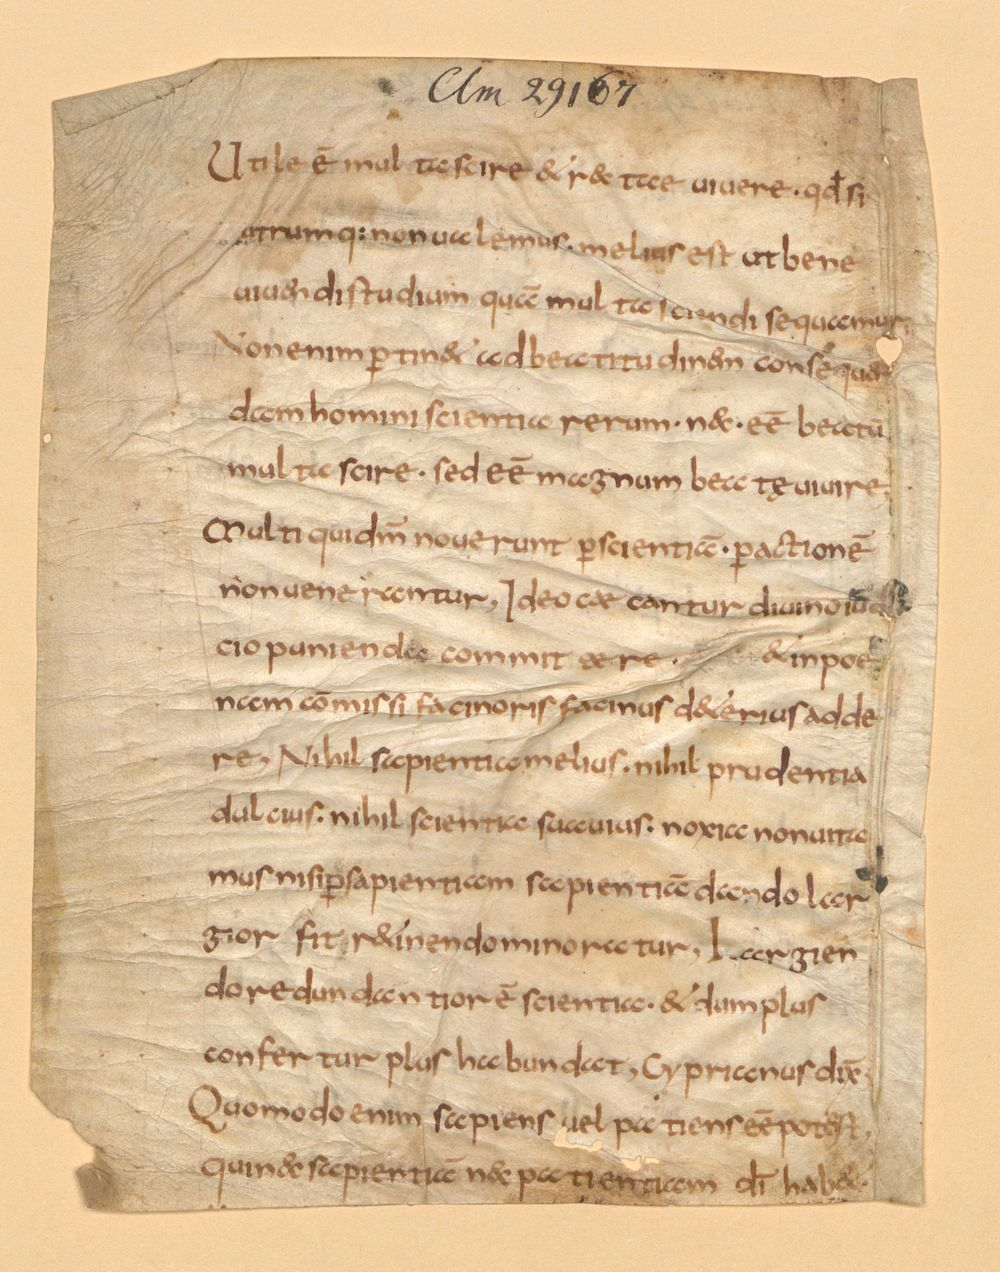 Clm 29167
Utile ē multa scire & r&cte uiuere · qđ si
utrumq: non ualemus · melius est ut bene
uiuendi studium quā multa sciendi sequamur,
Non enim ꝑtin& ad beatitudinem consequen
dam homini scientia rerum · n& · eē beatū
multa scire · sed eē magnum beatę uiuire,
Multi quidm̄ nouerunt ꝑ scientiā · ꝑ actionē
non uenerantur, Ideo
cio punienda committere · & in poe
nam cōmissi facinoris facinus d&erius adde
re, Nihil sapientia melius · nihil prudentia
dulcius · nihil scientia suauius · noxia non uita
mus nisi ꝑ sapientiam sapientiā dando lar
gior fit r&inendo minoratur, Largien
do redundantior ē scientia · & dum plus
confertur plus habundat, Cyprianus dix̄
Quomodo enim sapiens uel patiens eē potest,
quin& sapientiā n& patientiam dī hab& ·